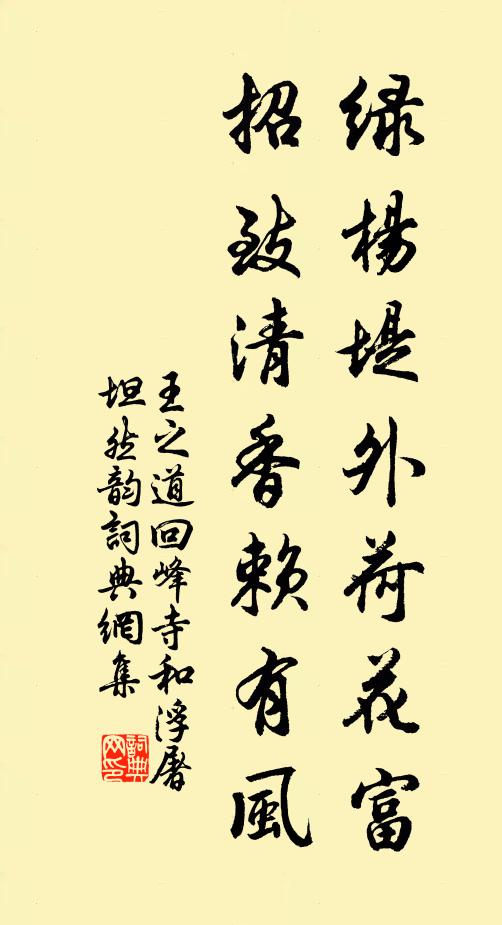 绿楊堤外荷花富
招致清香赖有風
王之道回峰寺和浮屠
坦然韵詞典網集
詞典
网印